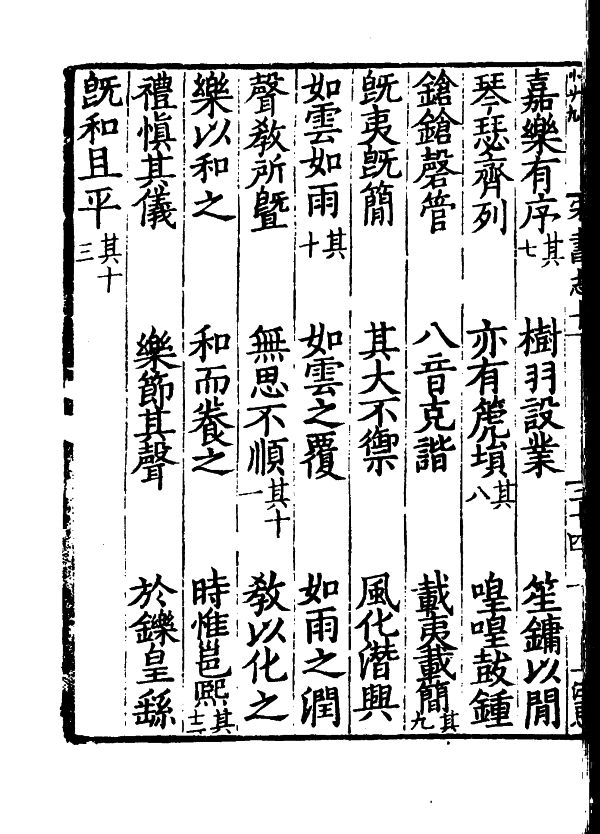 宋書志十　三十四
嘉樂有序其七　樹羽設業　笙鏞以閒
琴瑟齊列　亦有篪塤其八　喤喤鼓鍾
鎗鎗磬管　八音克諧　載夷載簡其九
旣夷旣簡　其大不禦　風化潛興
如雲如雨其十　如雲之覆　如雨之潤
聲敎所曁　無思不順其十一　敎以化之
樂以和之　和而養之　時惟邕熙其十二
禮愼其儀　樂節其聲　於鑠皇繇
旣和且平其十三